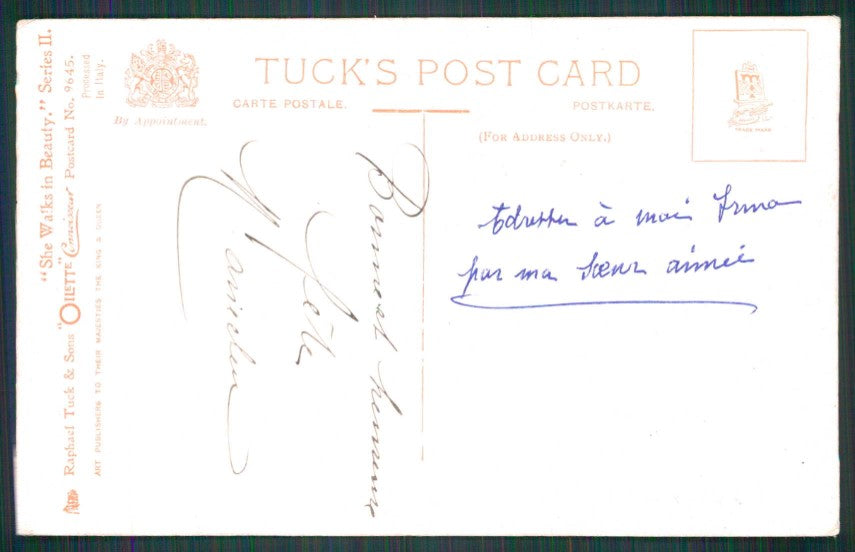 "She Walks in Beauty." Series II.
Raphael Tuck & Sons "OILETTE" Connoisseur Postcard No. 9645.
Processed
in Italy.
ART PUBLISHERS TO THEIR MAJESTIES THE KING & QUEEN
By Appointment.
TUCK'S POST CARD
CARTE POSTALE.
POSTKARTE.
(FOR ADDRESS ONLY.)
TRADE MARK
Bonne et heureuse
fête
adresser à moi Irma
par ma sœur aimée